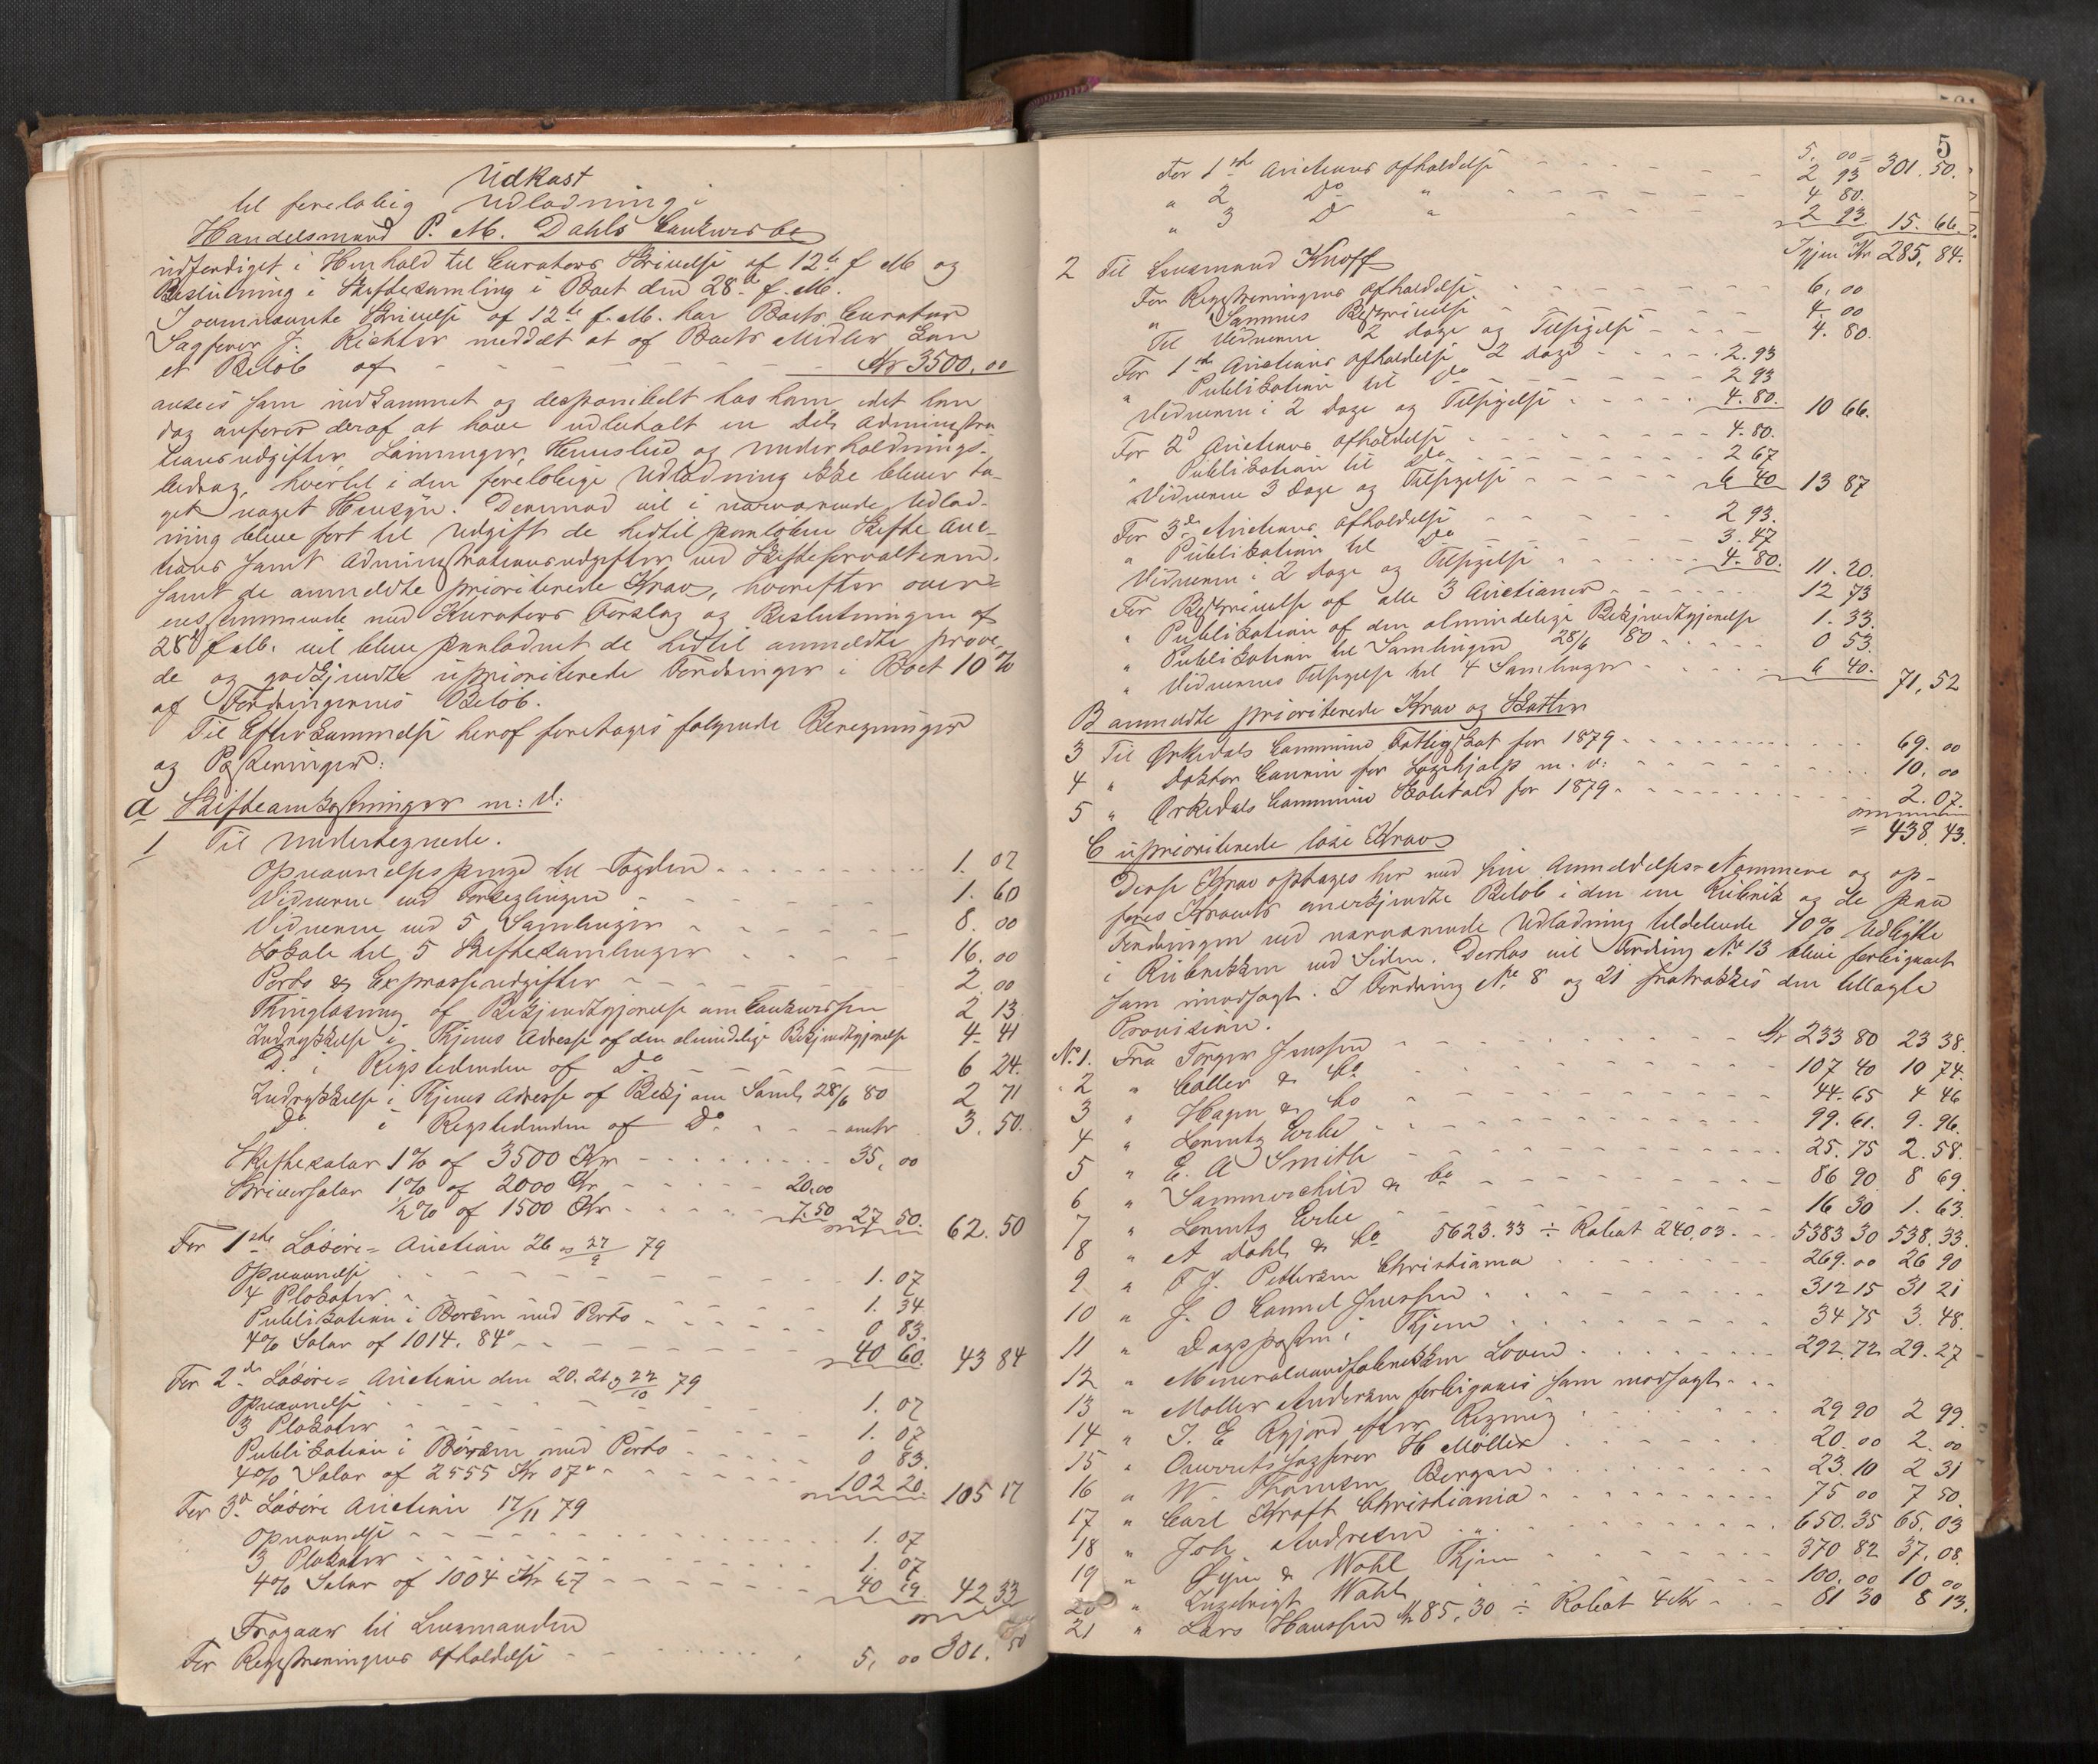 Udkast
til foreløbig Udlodning i
Handelsmand P. M. Dahls Concursbo
udfærdiget i Henhold til Curators Skrivelse af 12te f M og
Beslutning i Skiftesamling i Boet den 28de f. M.
I ovennævnte Skrivelse af 12te f. M. har Boets Curator
Sagfører J. Richter meddelt at af Boets Midler kan
et Beløb af - - - Kr 3500,00
ansees som indkommet og desponibelt hos ham idet han
dog anfører deraf at have udbetalt en Dels Administra
tionsudgifter, Lønninger, Huusleie og Underholdnings-
bidrag, hvortil i den foreløbige Udlodning ikke bliver ta-
get noget Hensyn. Derimod vil i nærværende Udlod-
ning blive ført til Udgift de hidtil paaløbne Skifte Auc-
tions samt Administrationsudgifter ved Skifteforvalteren.
samt de anmeldte prioriterede Krav, hvorefter over=
ensstemmende med Kurators Forslag og Beslutningen af
28d f. M. vil blive paalodnet de hidtil anmeldte prøve-
de og godkjendte uprioriterede Fordringer i Boet 10 %
af Fordringernes Beløb.
Til Efterkommelse herof foretages følgende Beregninger
og Posteringer:
a Skifteomkostninger m: v:
1 Til Undertegnede.
Opnævnelsespenge til Fogden 1. 07
Vidnerne ved Forseglingen 1. 60
Vidnerne ved 5 Samlinger 8. 00
Lokale til 5 Skiftesamlinger 16. 00
Porto & Expresseudgifter 2. 00
Thinglæsning af Bekjendtgjørelse om Concursen 2 13
Indrykkelse i Thjems Adresse af den almindelige Bekjendtgjørelse 4 41
Do i Rigstidenden af Do 6 24.
Indrykkelse i Thjems Adresse af Bekj om Saml, 28/6 80 2 71
do i Rigstidenden af Do omtr 3. 50.
Skiftesalær 1% af 3500 Kr 35, 00
Skriversalær 1% af 2000 Kr 20,00
1/2% af 1500 Kr 7.50 27 50. 62. 50
For 1ste Løsøre= Auction 26 og 27/9 79
Opnævnelse 1. 07
4 Plakater 1. 34
Publikation i Børsen med Porto 0 83.
4% Salær af 1014. 84" 40 60. 43 84
For 2de Løsøre= Auction den 20. 21 og 22/10 79
Opnævnelse 1. 07
3 Plakater 1. 07
Publikation i Børsen med Porto 0 83.
4% Salær af 2555 Kr 07" 102 20. 105 17
For 3d Løsøre Auction 17/11 79
Opnævnelse 1. 07
3 Plakater 1. 07
4% Salær af 1004 Kr 67 40 19 42 33
Fragaar til Lensmanden
For Registreringens Afholdelse 5, 00 301. 50
5
5. 00 = 301. 50.
For 1ste Auctions Afholdelse 2 93
" 2 Do " 4 80.
" 3 D " 2 93 15. 66.
Igjen Kr 285, 84.
2 Til Lensmand Knoff
For Registreringens Afholdelse 6, 00
" Sammes Beskrivelse 4 00
Til Vidnerne 2 dage og Tilsigelse 4. 80.
For 1ste Auctions Afholdelse 2 dage 2. 93
" Publikation til Do 2 93
Vidnerne i 2 Dage og Tilsigelse 4. 80. 10 66.
For 2d Auctions Afholdelse 4. 80.
" Publikation til Do 2 67
" Vidnerne 3 Dage og Tilsigelse 6 40 13 87
For 3de Auctions Afholdelse 2 93.
" Publikation til Do 3. 47
Vidnerne i 2 dage og Tilsigelse 4. 80. 11. 20.
For Beskrivelse af alle 3 Auctioner 12 73
" Publikation af den almindelige Bekjendtgjørelse 1. 33.
" Publikation til Samlingen 28/6 80 0 53.
" Vidnernes Tilsigelse til 4 Samlinger 6 40. 71, 52
B anmeldte prioriterede Krav og Skatter
3 Til Ørkedals Commune Fattigskat for 1879 69. 00
4 " Doktor for Lægehjælp m. v: 10, 00
5 " Ørkedals Commune Skolehold for 1879 2. 07.
= 438. 43.
C uprioriterede løse Krav
Disse Krav optages her med sine Anmeldelses-Nommere og op-
føres Kravets anerkjendte Beløb i den ene Rubrik og de paa
Fordringen ved nærværende Udlodning tildelende 10% Udbytte
i Rubrikken ved Siden. Derhos vil Fordring No 13 blive forbigaaet
som imodsagt. I Fordring No 8 og 21 fratrækkes den tillagte
Provision.
No. 1. Fra Torger Jenssen Kr 233 80 23 38.
2 " Coller & Co 107 40 10 74.
3 " Hagen & Co 44. 65 4 46
4 " Lorentz Erbe 99. 61. 9. 96.
5 " E. A Smith 25. 75 2. 58.
6 " Sommerschild & Co 86 90 8 69.
7 " Lorentz Erbe 16 30 1. 63.
8 " A Dahl & Co 5623. 33 ÷ Rabat 240,03. 5383 30 538. 33.
9 " F J. Pettersen Christiania 269. 00 26 90
10 " J. O Jenssen 312 15 31 21
11 " Dagsposten i Thjem 34 75 3. 48.
12 " Mineralvandsfabrikken Loven 292. 72 29. 27
13 " Møller Andersen forbigaaes som modsagt
14 " J. E Rgjord efter Regning 29 90 2 99.
15 " Overretssagfører H Møller 20. 00 2. 00
16 " W. Thomsen Bergen 23. 10 2 31
17 " Carl Kraft Christiania 75 00 7 50.
18 " Joh. Andresen " 650. 35 65, 03
19 " Øyen & Wahl Thjem 370 82 37. 08.
20 " Wahl 100. 00 10. 00
21 " Lars Hanssen Kr 85. 30 ÷ Rabat 4 Kr 81 30 8 13.